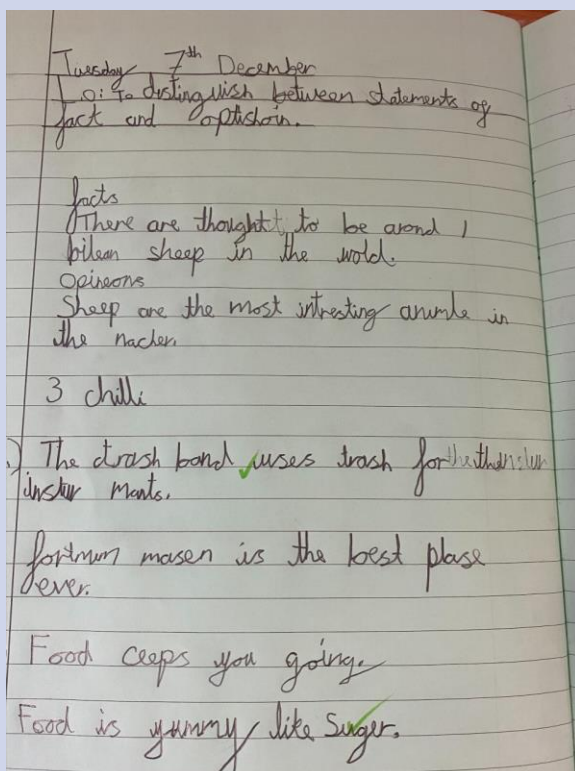 Tuesday 7th December
L o: To distinguish between statements of
fact and optishoin.
facts
There are thought to be arond 1
bilean sheep in the wold.
Opineons
Sheep are the most intresting anumle in
the nacher.
3 chilli
The trash band uses trash for
mants.
fortnum masen is the best plase
ever.
Food ceeps you going.
Food is yummy like Suger.